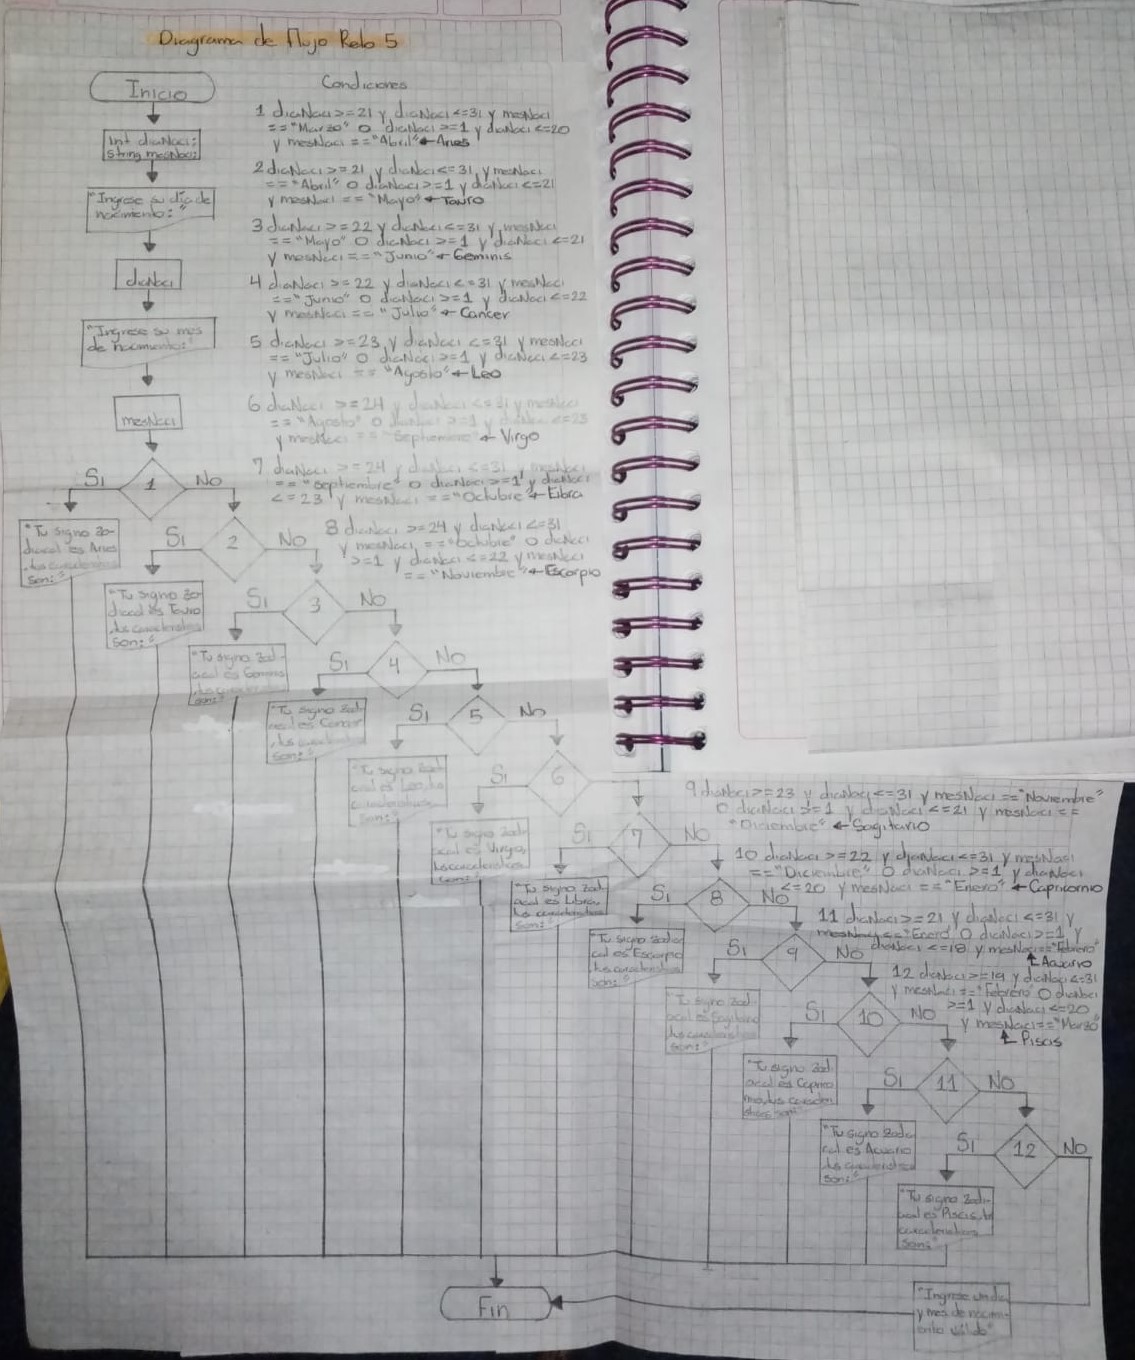 Diagrama de Flujo Reto 5
Inicio
Int diaNaci;
String mesNaci;
"Ingrese su día de
nacimiento: "
diaNaci
"Ingrese su mes
de nacimiento:"
mesNaci
Condiciones
1 diaNaci >=21 y diaNaci <=31 y mesNaci
=="Marzo" O diaNaci >=1 y diaNaci <=20
y mesNaci =="Abril" ← Aries
2 diaNaci >=21 y diaNaci <=31 y mesNaci
== "Abril" O diaNaci >=1 y diaNaci <=21
y mesNaci == "Mayo" ← Tauro
3 diaNaci >=22 y diaNaci <=31 y mesNaci
== "Mayo" O diaNaci >=1 y diaNaci <=21
y mesNaci == "Junio" ← Geminis
4 diaNaci >=22 y diaNaci <=31 y mesNaci
=="Junio" O diaNaci >=1 y diaNaci <=22
y mesNaci == "Julio" ← Cancer
5 diaNaci >=23 y diaNaci <=31 y mesNaci
== "Julio" O diaNaci >=1 y diaNaci <=23
y mesNaci == "Agosto" ← Leo
6 diaNaci >=24 y diaNaci <=31 y mesNaci
== "Agosto" O diaNaci >=1 y diaNaci <=23
y mesNaci == "Septiembre" ← Virgo
7 diaNaci >=24 y diaNaci <=31 y mesNaci
== "Septiembre" O diaNaci >=1 y diaNaci
<=23 y mesNaci =="Octubre" ← Libra
8 diaNaci >=24 y diaNaci <=31
y mesNaci =="Octubre" O diaNaci
>=1 y diaNaci <=22 y mesNaci
== "Noviembre" ← Escorpio
9 diaNaci >=23 y diaNaci <=31 y mesNaci =="Noviembre"
O diaNaci >=1 y diaNaci <=21 y mesNaci ==
"Diciembre" ← Sagitario
10 diaNaci >=22 y diaNaci <=31 y mesNaci
=="Diciembre" O diaNaci >=1 y diaNaci
<=20 y mesNaci =="Enero" ← Capricornio
11 diaNaci >=21 y diaNaci <=31 y
mesNaci =="Enero" O diaNaci >=1 y
diaNaci <=18 y mesNaci=="Febrero"
↑ Acuario
12 diaNaci >=19 y diaNaci <=31
y mesNaci=="Febrero" O diaNaci
>=1 y diaNaci <=20
y mesNaci=="Marzo"
↑ Piscis
Si 1 No
"Tu signo zo-
diacal es Aries
,tus caracteristicas
son: "
Si 2 No
"Tu signo zo-
diacal es Tauro
,tus caracteristicas
son: "
Si 3 No
"Tu signo zodi-
acal es Geminis
,tus caracteristicas
son: "
Si 4 No
"Tu signo zodi-
acal es Cancer
,tus caracteristicas
son: "
Si 5 No
"Tu signo zodi-
acal es Leo, tus
caracteristicas
son: "
Si 6
"Tu signo zodi-
acal es Virgo,
tus caracteristicas
son: "
Si 7 No
"Tu signo zodi-
acal es Libra,
tus caracteristicas
son: "
Si 8 No
"Tu signo zodia-
cal es Escorpio
,tus caracteristicas
son: "
Si 9 No
"Tu signo zodi-
acal es Sagitario
,tus caracteristicas
son: "
Si 10 No
"Tu signo zodi-
acal es Caprico
Si 11 No
"Tu signo zodia-
cal es Acuario
,tus caracteristicas
son: "
Si 12 No
"Tu signo zodi-
acal es Piscis, tus
caracteristicas
son: "
"Ingrese un dia
y mes de nacimi-
ento válido"
Fin